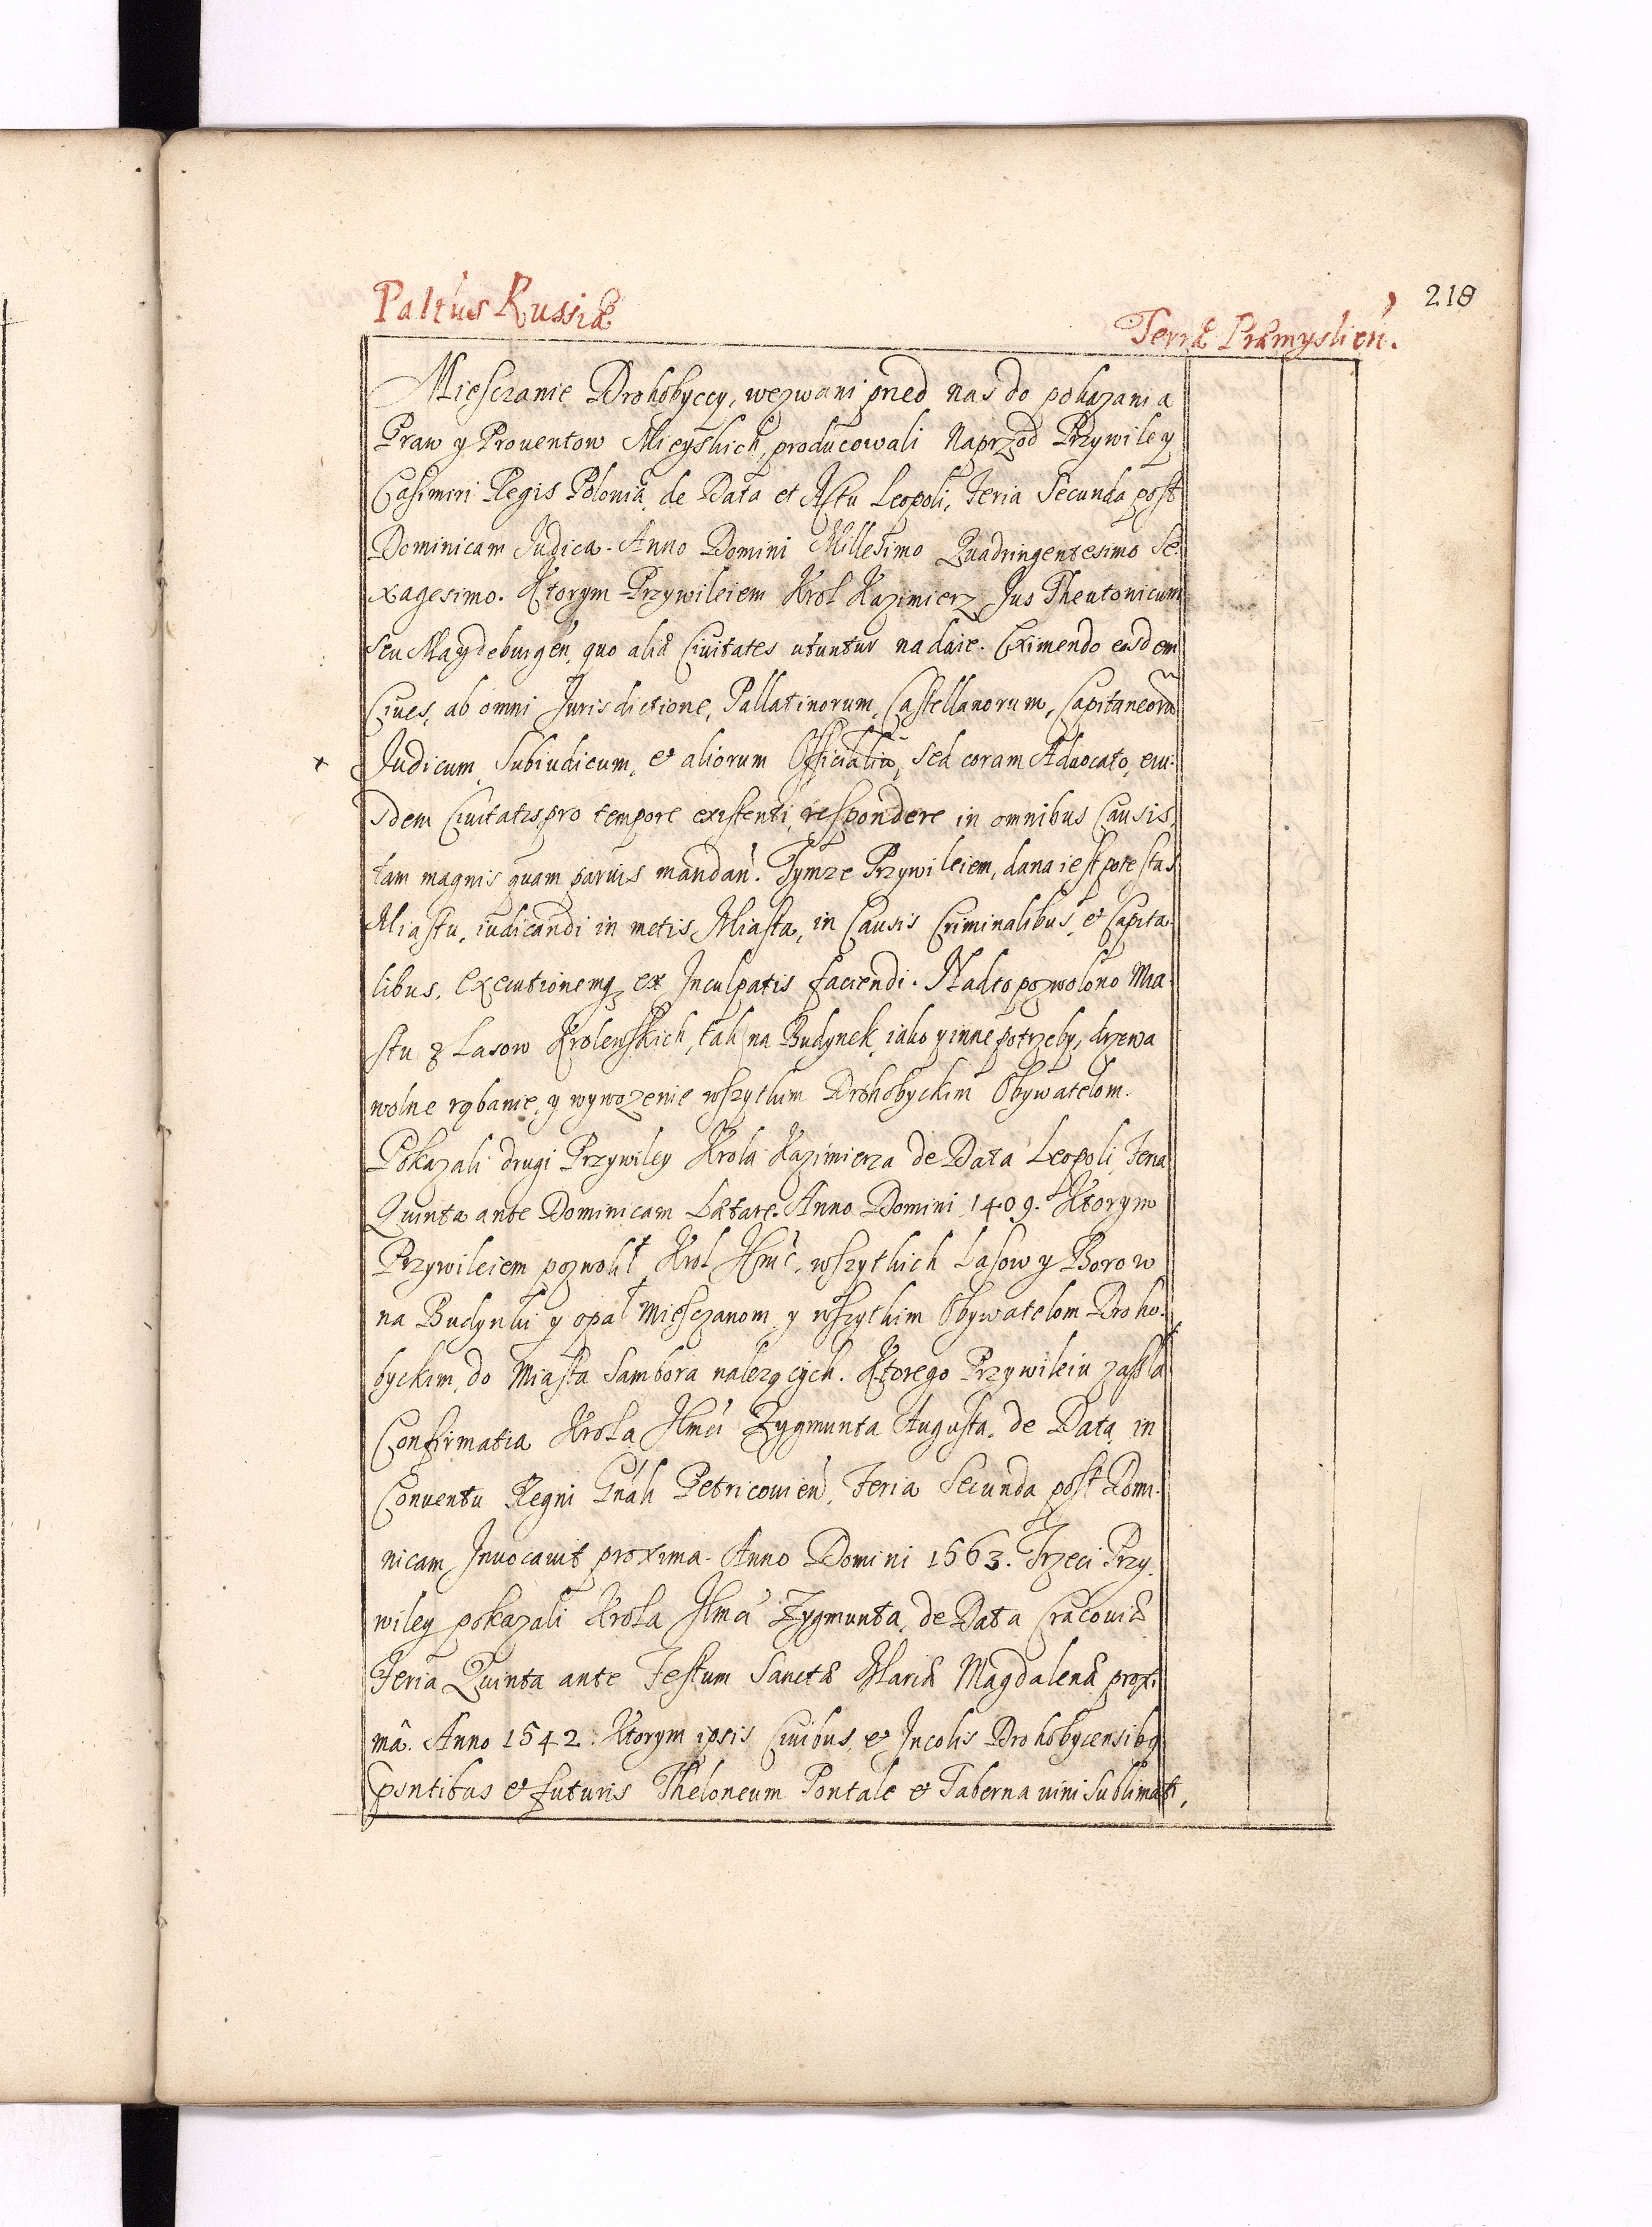 Paltus Russiæ
218
Terræ Præmyslien̄.
Miesczanie Drohobyccy, wezwani pzed nas do pokazania
Praw y Prouentow Mieyskich, producowali Naprzod Przywiley
Casimiri Regis Poloniæ, de Data et Actu Leopoli, Feria Secunda post
Dominicam Judica. Anno Domini Millesimo Quadringentesimo Se:
xagesimo. Ktorym Przywileiem Krol Kazimierz Jus Theutonicum
seu Magdeburgen̄, quo aliæ Ciuitates utuntur nadaie. Eximendo eosdem
Ciues, ab omni Jurisdictione, Pallatinorum, Castellanorum, Capitaneorū
x Judicum, Subiudicum, et aliorum Officialiū, sed coram Aduocato, eiu:
sdem Ciuitatis pro tempore existenti, respondere in omnibus Causis,
tam magnis quam paruis mandan̄. Tymze Przywileiem, dana iest potestas
Miastu, iudicandi in metis Miasta, in Causis Criminalibus, et Capita:
libus, Executionemq₃ ex Inculpatis faciendi. Nadto pozwolono Mia:
stu z Lasow Krolewskich, tak na Budynek, iako y inne potrzeby, drzewa
wolne rąbanie, y wywozenie wszytkim Drohobyckim Obywatelom.
Pokazali drugi Przywiley Krola Kazimierza de Data Leopoli, Feria
Quinta ante Dominicam Lætare. Anno Domini 1409. Ktorym
Przywileiem pozwolił Krol Jmć, wszytkich Lasow y Borow
na Budynki y opał Miesczanom, y wszytkim Obywatelom Droho:
byckim, do Miasta Sambora nalezących. Ktorego Przywileiu zaszła
Confirmatia Krola Jmci Zygmunta Augusta, de Data, in
Conuentu Regni Gn̄ali Petricouien̄, Feria Secunda post Domi:
nicam Inuocauit proxima. Anno Domini 1563. Trzeci Przy:
wiley pokazali Krola Jmci Zygmunta, de Data Cracouiæ
Feria Quinta ante Festum Sanctæ Mariæ Magdalenæ proxi:
mâ. Anno 1542. Ktorym ipsis Ciuibus, et Incolis Drohobycensibq
pn̄tibus et futuris Theloneum Pontale et Taberna uini Sublimati,